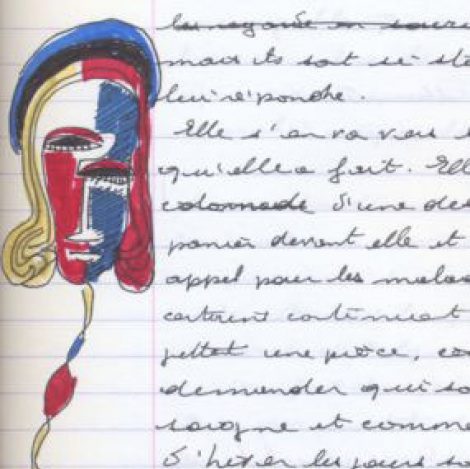 les regarde en sour
mais ils sont si
lui réponde.
Elle s'en va vers
qu'elle a fait. Ell
colonnade d'une des
panier devant elle et
appel pour les malad
certains continuent
jettent une pièce, 
demander qui so
soigne et comme
d'hiver les jours